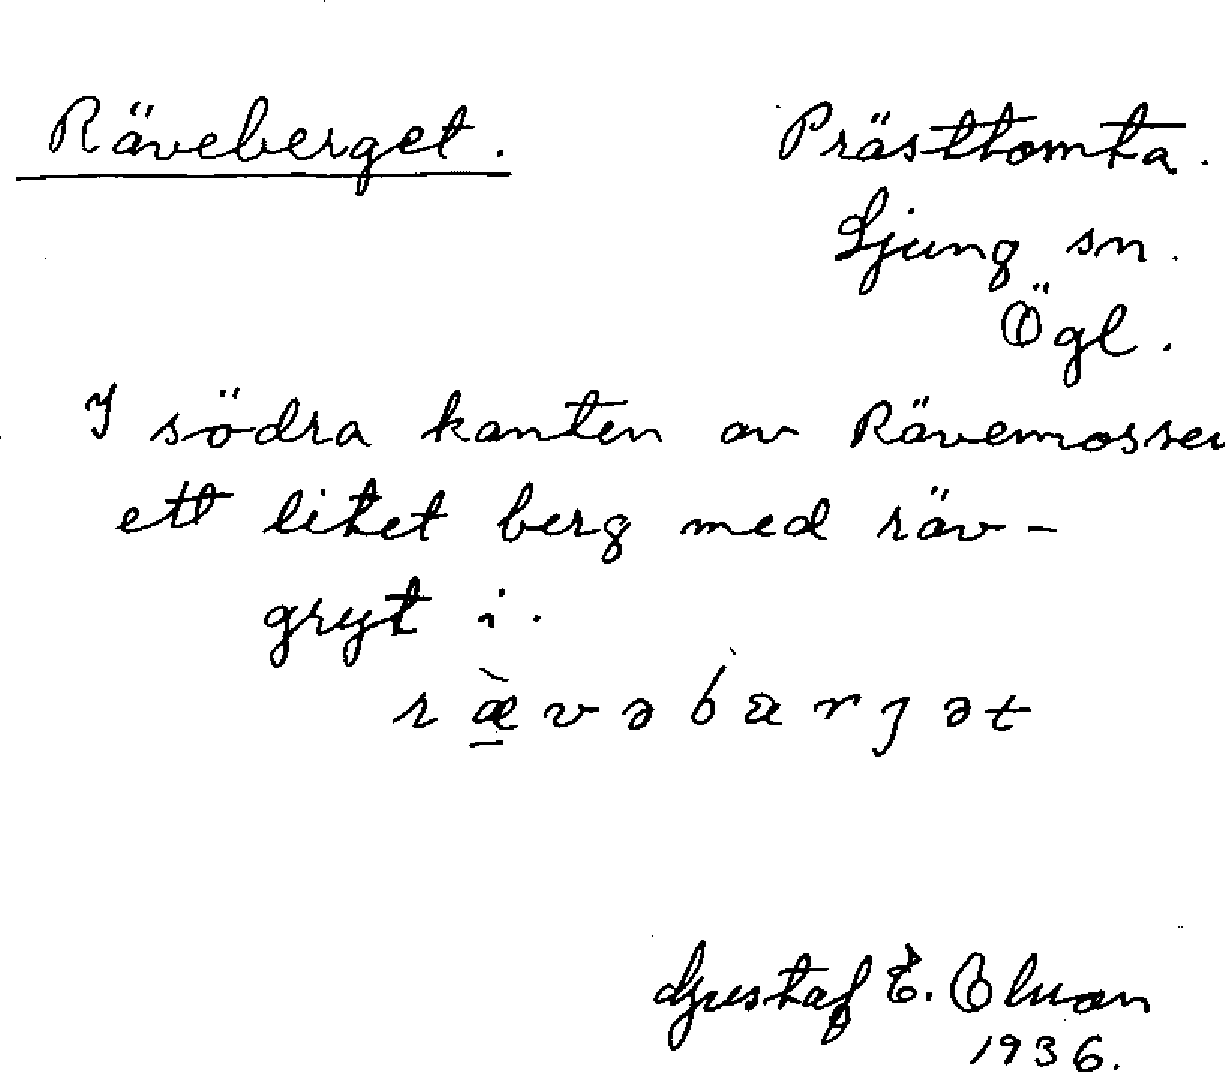 Räveberget. Prästtomta.
Ljung sn.
Ögl.
I södra kanten av Rävemossen
ett litet berg med räv-
gryt i.
Gustaf E.
1936.